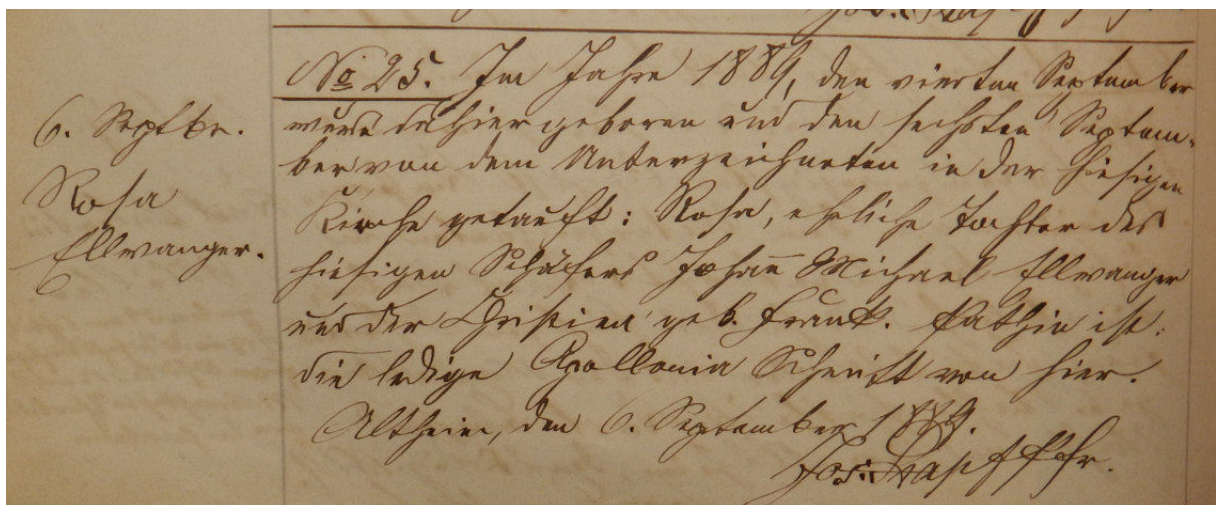 6. Septbr.
Rosa
Ellwanger.
No 25. Im Jahre 1889, den vierten September
wurde dahier geboren und den sechsten Septem-
ber von dem Unterzeichneten in der hiesigen
Kirche getauft: Rosa, eheliche Tochter des
hiesigen Schäfers Johann Michael Ellwanger
und der Christina geb. Frank. Pathin ist:
die ledige Apollonia von hier.
Altheim, den 6. September 1889.
Pfr.